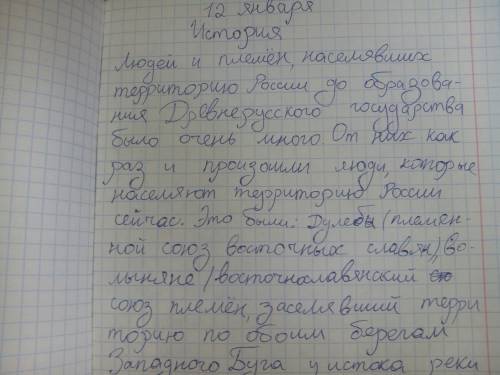 12 января
История
Людей и племён, населявших
территорию России до образова-
ния Древнерусского государства
было очень много. От них как
раз и произошли люди, которые
населяют территорию России
сейчас. Это были: Дулебы (племен-
ной союз восточных славян), Во-
лыняне (восточнославянский
союз племён, заселявший терри
торию по обоим берегам
Западного Буга у истока реки